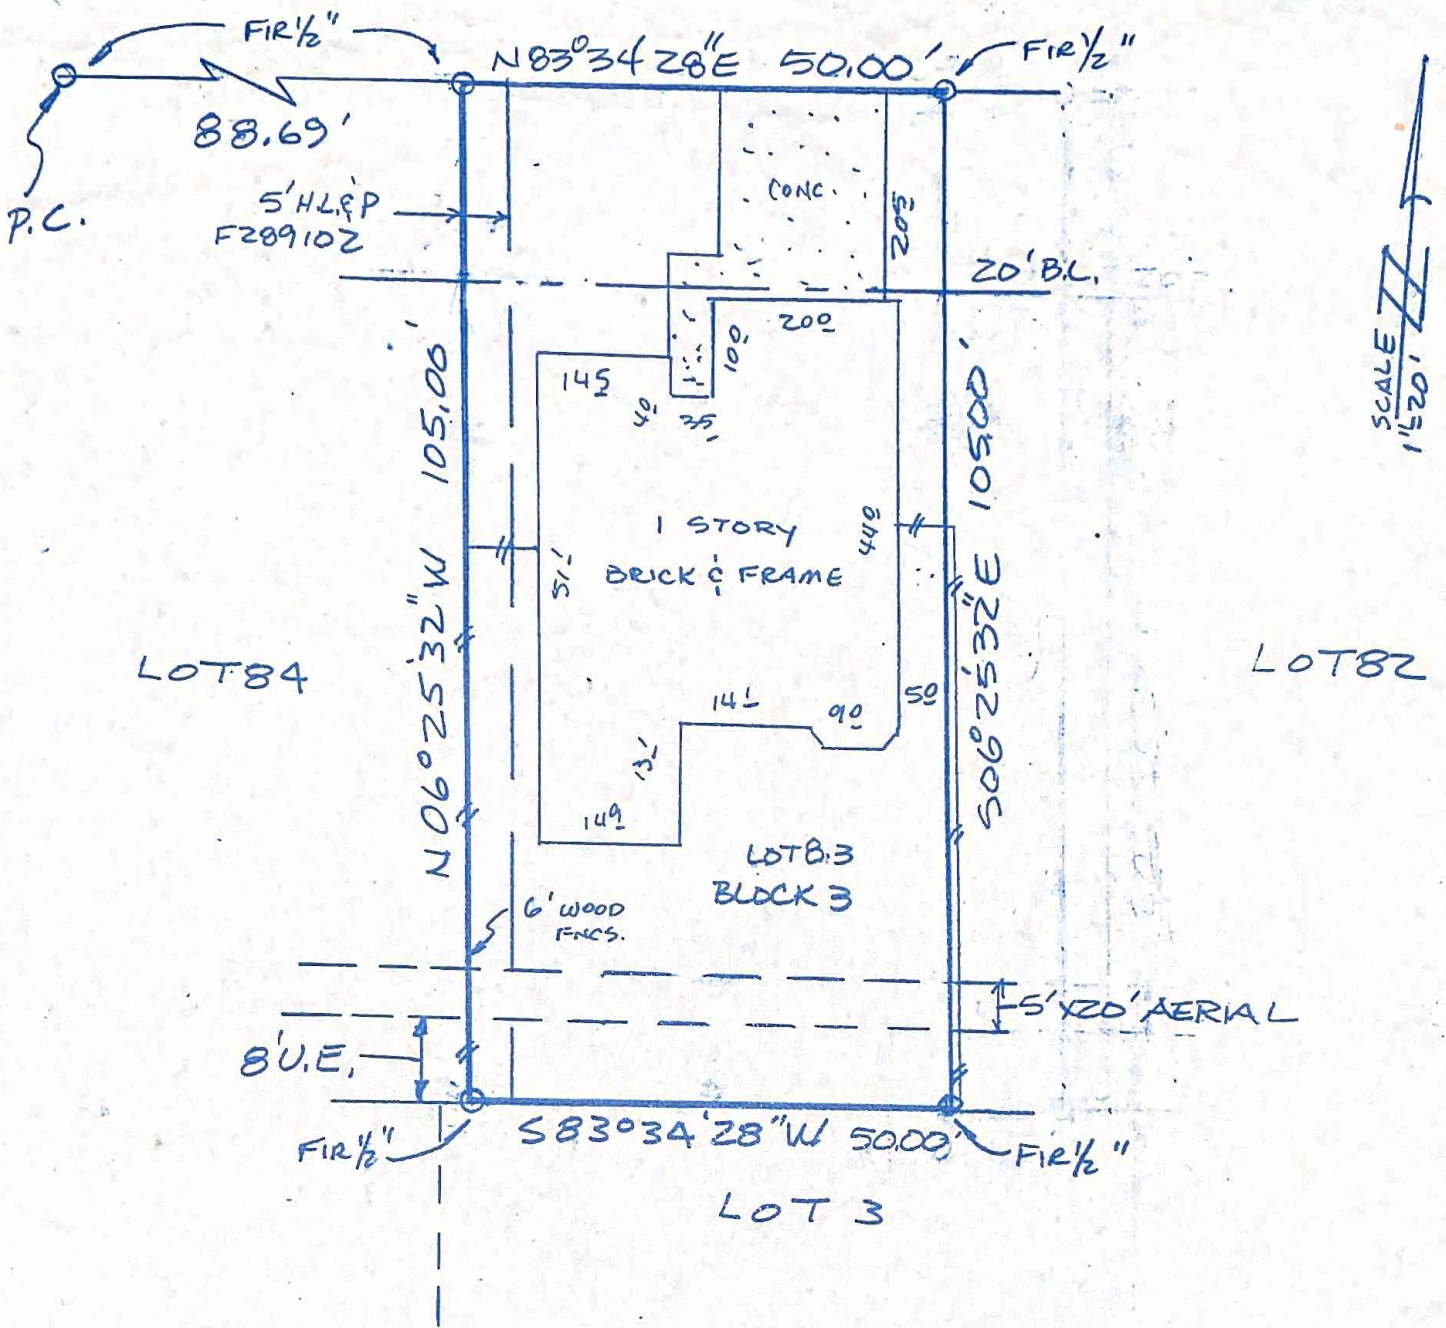 FIR ½"
N83°34'28"E 50.00'
FIR ½"
88.69'
P.C.
5' H.L.&P
F289102
CONC.
20⁵
20' B.L.
20⁰
10⁰
14⁵
4⁰
3⁵
SCALE
1"=20'
N06°25'32"W 105.00'
S06°25'32"E 105.00'
1 STORY
BRICK & FRAME
51¹
44⁰
LOT 84
LOT 82
14¹
9⁰
5⁰
13¹
14⁹
LOT 83
BLOCK 3
6' WOOD
FNCS.
5'X20' AERIAL
8' U.E.
FIR ½"
S83°34'28"W 50.00'
FIR ½"
LOT 3